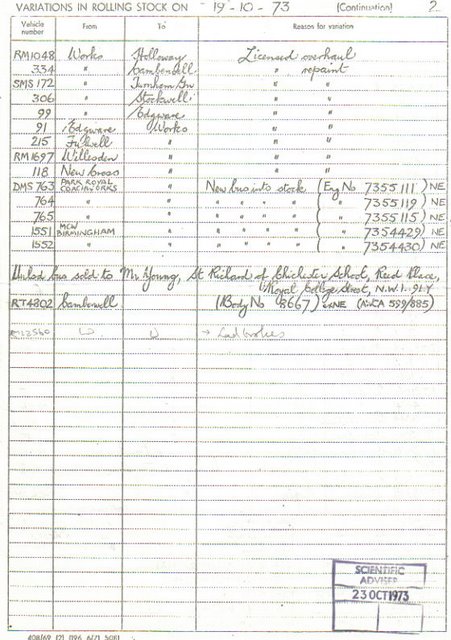 VARIATIONS IN ROLLING STOCK ON 19-10-73 (Continuation) 2
Vehicle number From To Reason for variation
RM1048 Works Holloway Licensed overhaul
334 " Camberwell " repaint
SMS172 " Turnham Gn " "
306 " Stockwell " "
99 " Edgware " "
91 Edgware Works " "
215 Fulwell " " "
RM1697 Willesden " " "
118 New Cross " " "
DMS763 PARK ROYAL COACHWORKS " New bus into stock (Eng No 7355111) NE
764 " " " " " " ( " 7355119) NE
765 " " " " " " ( " 7355115) NE
1551 MCW BIRMINGHAM " " " " " ( " 7354429) NE
1552 " " " " " " ( " 7354430) NE
bus sold to Mr Young, St Richard of Chichester School, Place,
Royal College Street, N.W.1.
RT4802 Camberwell (Body No 8667) NE 599/885)
→ Ladbrokes
SCIENTIFIC
ADVISER
23 OCT 1973